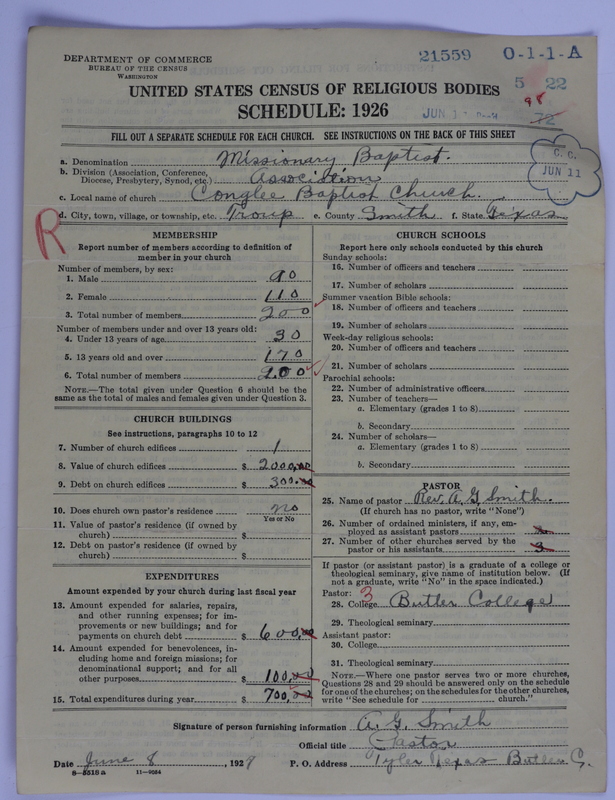 DEPARTMENT OF COMMERCE
BUREAU OF THE CENSUS
WASHINGTON
21559 0-1-1-A
5 22
98
72
UNITED STATES CENSUS OF RELIGIOUS BODIES
SCHEDULE: 1926
JUN
FILL OUT A SEPARATE SCHEDULE FOR EACH CHURCH. SEE INSTRUCTIONS ON THE BACK OF THIS SHEET
C. C.
JUN 11
a. Denomination Missionary Baptist.
b. Division (Association, Conference,
Diocese, Presbytery, Synod, etc.) Association
c. Local name of church Conglee Baptist Church.
d. City, town, village, or township, etc. Troup e. County Smith f. State Texas
R
MEMBERSHIP
Report number of members according to definition of
member in your church
Number of members, by sex:
1. Male 90
2. Female 110
3. Total number of members 200
Number of members under and over 13 years old:
4. Under 13 years of age 30
5. 13 years old and over 170
6. Total number of members 200
NOTE.—The total given under Question 6 should be
the same as the total of males and females given under Question 3.
CHURCH BUILDINGS
See instructions, paragraphs 10 to 12
7. Number of church edifices 1
8. Value of church edifices $ 2000,00
9. Debt on church edifices $ 300.00
10. Does church own pastor's residence no
Yes or No
11. Value of pastor's residence (if owned by
church) $
12. Debt on pastor's residence (if owned by
church) $
EXPENDITURES
Amount expended by your church during last fiscal year
13. Amount expended for salaries, repairs,
and other running expenses; for im-
provements or new buildings; and for
payments on church debt $ 600,00
14. Amount expended for benevolences, in-
cluding home and foreign missions; for
denominational support; and for all
other purposes $ 100,00
15. Total expenditures during year $ 700,00
CHURCH SCHOOLS
Report here only schools conducted by this church
Sunday schools:
16. Number of officers and teachers
17. Number of scholars
Summer vacation Bible schools:
18. Number of officers and teachers
19. Number of scholars
Week-day religious schools:
20. Number of officers and teachers
21. Number of scholars
Parochial schools:
22. Number of administrative officers
23. Number of teachers—
a. Elementary (grades 1 to 8)
b. Secondary
24. Number of scholars—
a. Elementary (grades 1 to 8)
b. Secondary
PASTOR
25. Name of pastor Rev. A. G. Smith.
(If church has no pastor, write "None")
26. Number of ordained ministers, if any, em-
ployed as assistant pastors
27. Number of other churches served by the
pastor or his assistants 3
If pastor (or assistant pastor) is a graduate of a college or
theological seminary, give name of institution below. (If
not a graduate, write "No" in the space indicated.)
Pastor: 3
28. College Butler College
29. Theological seminary
Assistant pastor:
30. College
31. Theological seminary
NOTE.—Where one pastor serves two or more churches,
Questions 28 and 29 should be answered only on the schedule
for one of the churches; on the schedules for the other churches,
write "See schedule for church."
Signature of person furnishing information A. G. Smith
Official title Pastor
Date June 8, 1927 P. O. Address Tyler Texas Butler C.
8—5518 a 11—9024